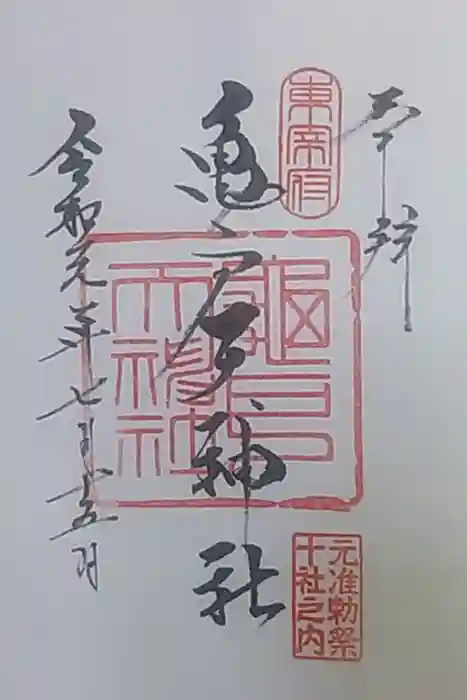 奉拝
東宰府
亀戸天神社
元准勅祭
十社之内
令和元年七月十五日